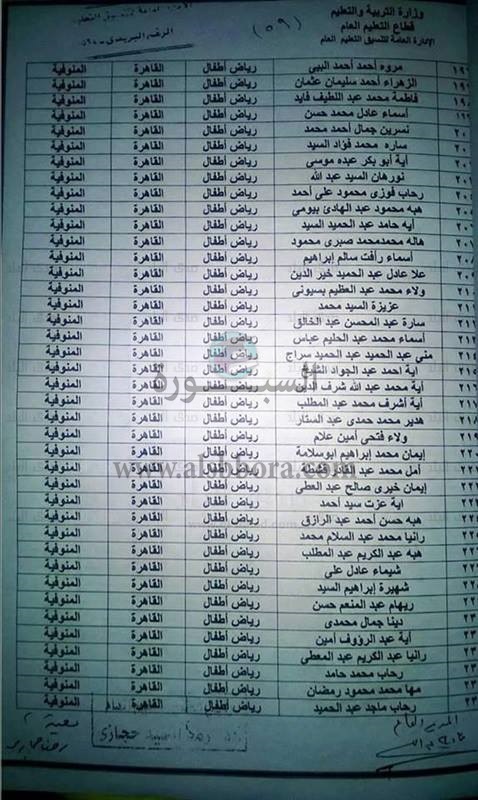 وزارة التربية والتعليم
قطاع التعليم العام
الإدارة العامة لتنسيق التعليم العام
(٥٩)
مروه أحمد أحمد الببي رياض أطفال القاهرة المنوفية
الزهراء أحمد سليمان عثمان رياض أطفال القاهرة المنوفية
فاطمة محمد عبد اللطيف فايد رياض أطفال القاهرة المنوفية
أسماء عادل محمد حسن رياض أطفال القاهرة المنوفية
نسرين جمال أحمد محمد رياض أطفال القاهرة المنوفية
ساره محمد فؤاد السيد رياض أطفال القاهرة المنوفية
آية أبو بكر عبده موسى رياض أطفال القاهرة المنوفية
نورهان السيد عبد الله رياض أطفال القاهرة المنوفية
رحاب فوزى محمود على أحمد رياض أطفال القاهرة المنوفية
هبه محمود عبد الهادى بيومى رياض أطفال القاهرة المنوفية
أيه حامد عبد الحميد السيد رياض أطفال القاهرة المنوفية
هاله محمدمحمد صبرى محمود رياض أطفال القاهرة المنوفية
أسماء رأفت سالم إبراهيم رياض أطفال القاهرة المنوفية
علا عادل عبد الحميد خير الدين رياض أطفال القاهرة المنوفية
ولاء محمد عبد العظيم بسيونى رياض أطفال القاهرة المنوفية
عزيزة السيد محمد رياض أطفال القاهرة المنوفية
سارة عبد المحسن عبد الخالق رياض أطفال القاهرة المنوفية
أسماء محمد عبد الحليم عباس رياض أطفال القاهرة المنوفية
منى عبد الحميد عبد الحميد سراج رياض أطفال القاهرة المنوفية
اية احمد عبد الجواد الشيخ رياض أطفال القاهرة المنوفية
آية محمد عبد الله شرف الدين رياض أطفال القاهرة المنوفية
آية أشرف محمد عبد المطلب رياض أطفال القاهرة المنوفية
هدير محمد حمدى عبد الستار رياض أطفال القاهرة المنوفية
ولاء فتحى أمين علام رياض أطفال القاهرة المنوفية
إيمان محمد إبراهيم ابوسلامة رياض أطفال القاهرة المنوفية
أمل محمد عبد القادر رياض أطفال القاهرة المنوفية
إيمان خيرى صالح عبد العطى رياض أطفال القاهرة المنوفية
آية عزت سيد أحمد رياض أطفال القاهرة المنوفية
هبه حسن أحمد عبد الرازق رياض أطفال القاهرة المنوفية
رانيا محمد عبد السلام محمد رياض أطفال القاهرة المنوفية
هبه عبد الكريم عبد المطلب رياض أطفال القاهرة المنوفية
شيماء عادل على رياض أطفال القاهرة المنوفية
شهيرة إبراهيم السيد رياض أطفال القاهرة المنوفية
ريهام عبد المنعم حسن رياض أطفال القاهرة المنوفية
دينا جمال محمدى رياض أطفال القاهرة المنوفية
آية عبد الرؤوف أمين رياض أطفال القاهرة المنوفية
رانيا عبد الكريم عبد المعطى رياض أطفال القاهرة المنوفية
رحاب محمد حامد رياض أطفال القاهرة المنوفية
مها محمد محمود رمضان رياض أطفال القاهرة المنوفية
رحاب ماجد عبد الحميد رياض أطفال القاهرة المنوفية
السبورة
www.alsbbora.com
المدير العام
حجازى